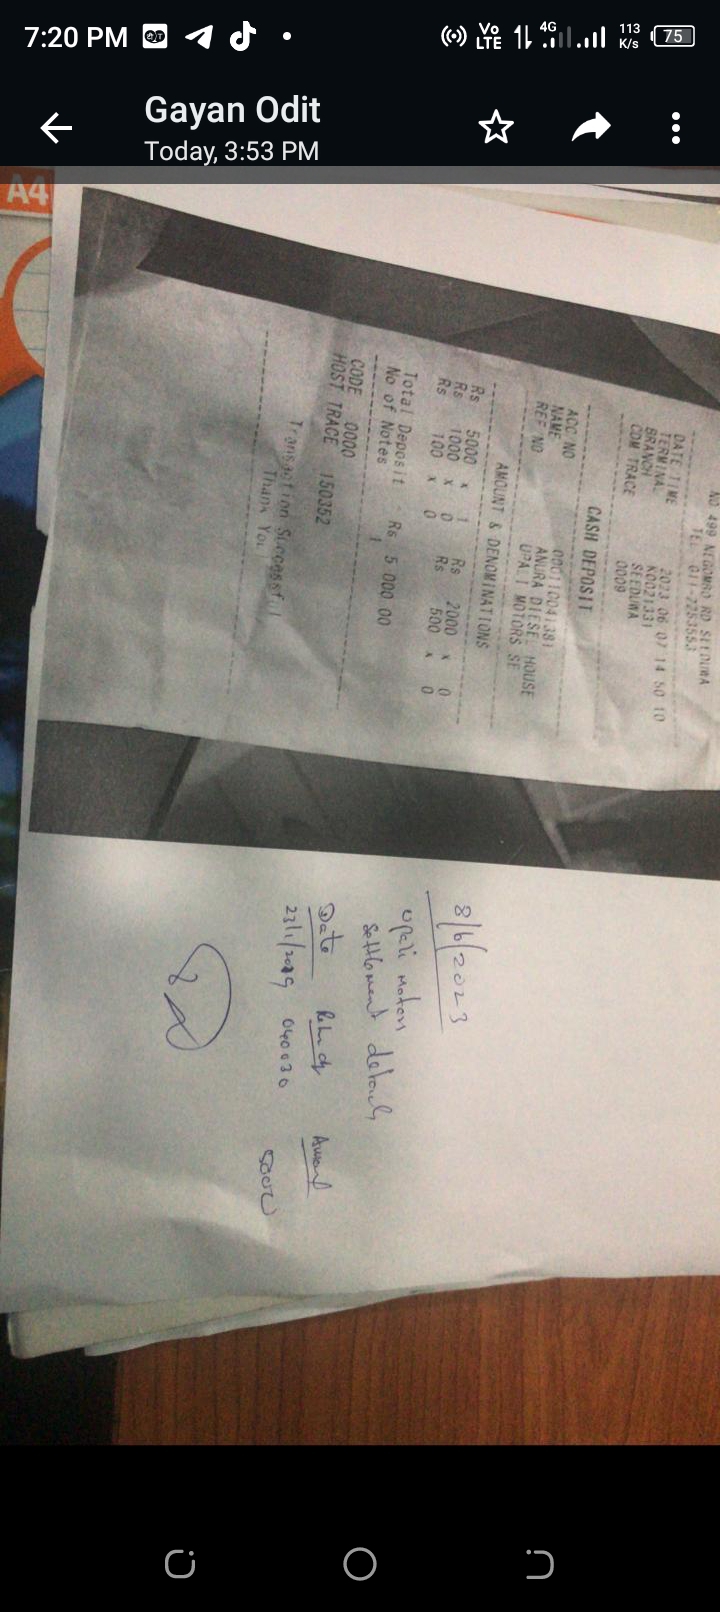 7:20 PM
Vo
LTE
4G
113
K/s
75
Gayan Odit
Today, 3:53 PM
A4
NO 499 NEGOMBO RD SEEDUWA
TEL 011-2253553
DATE TIME 2023 06 07 14 50 10
TERMINAL K0021331
BRANCH SEEDUWA
CDM TRACE 0009
CASH DEPOSIT
ACC NO 000110041381
NAME ANURA DIESEL HOUSE
REF NO UPALI MOTORS SE
AMOUNT & DENOMINATIONS
Rs 5000 x 1 Rs 2000 x 0
Rs 1000 x 0 Rs 500 x 0
Rs 100 x 0
Total Deposit Rs 5 000 00
No of Notes 1
CODE 0000
HOST TRACE 150352
Transaction Successful
Thank You
8/6/2023
upali motors
settlement details
Date
23/1/2019 040030